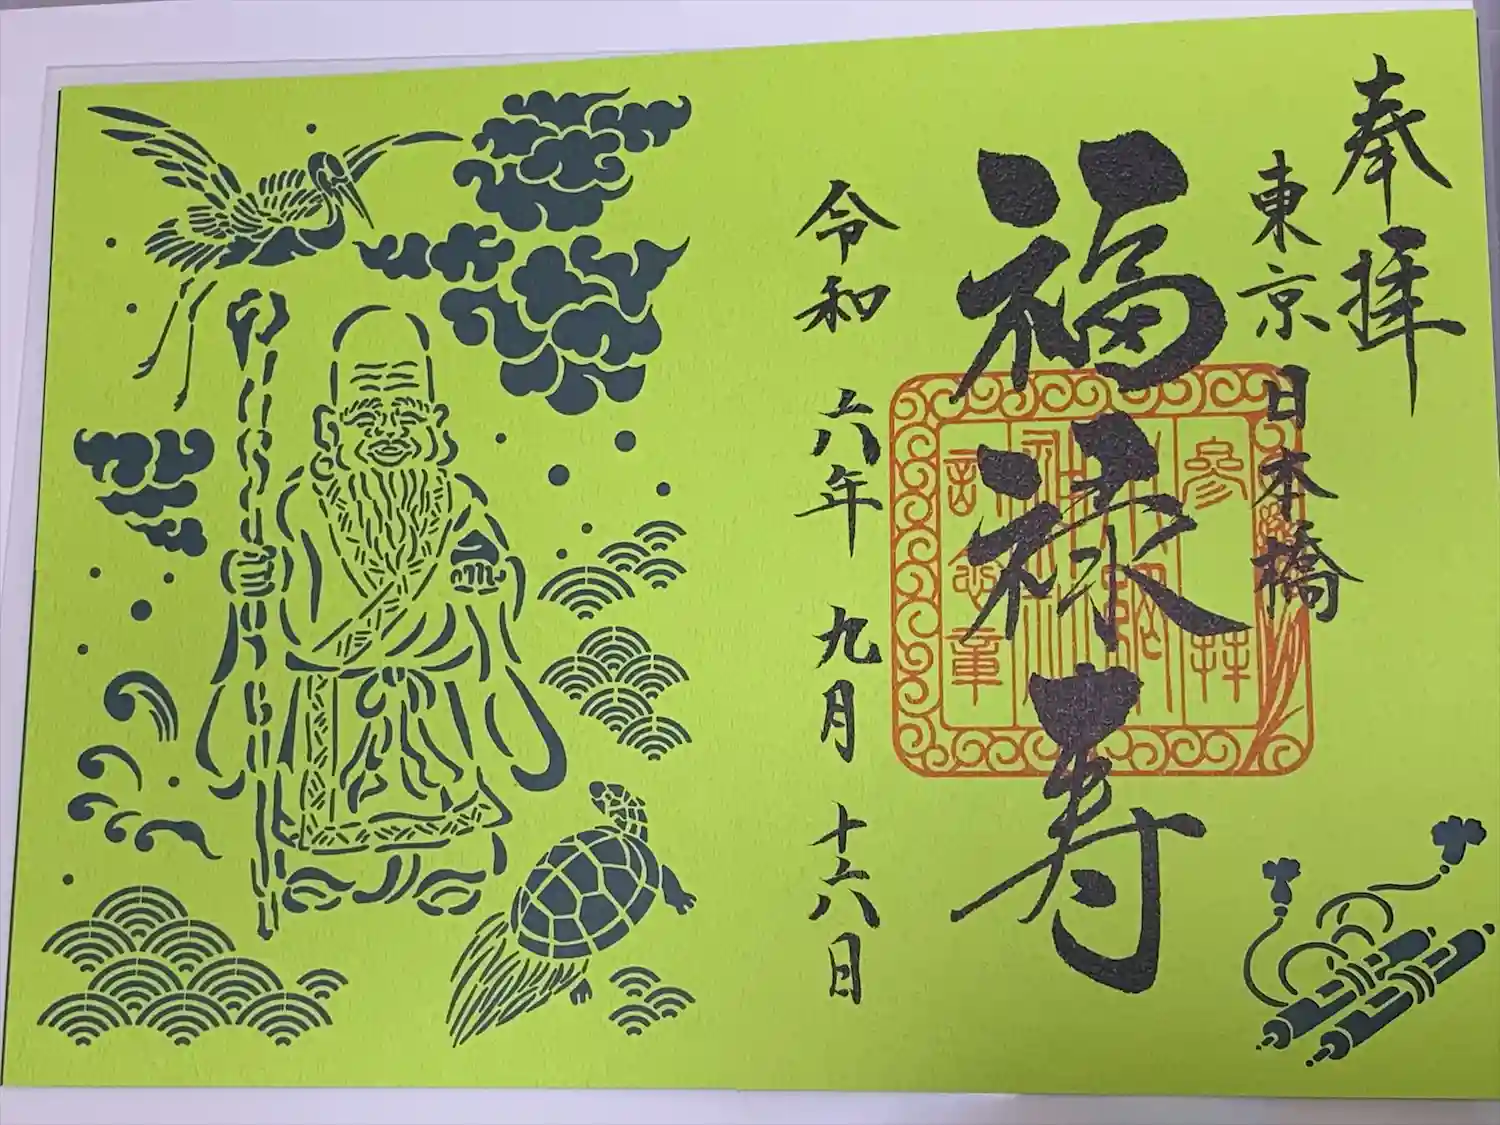 奉拝
東京日本橋
福禄寿
参拝
記念章
令和六年九月十六日